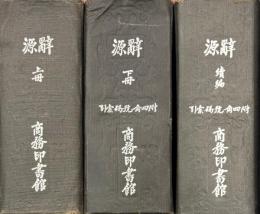 辭源
上冊
商務印書館
辭源
下冊
附四角號碼索引
商務印書館
辭源
續編
附四角號碼索引
商務印書館